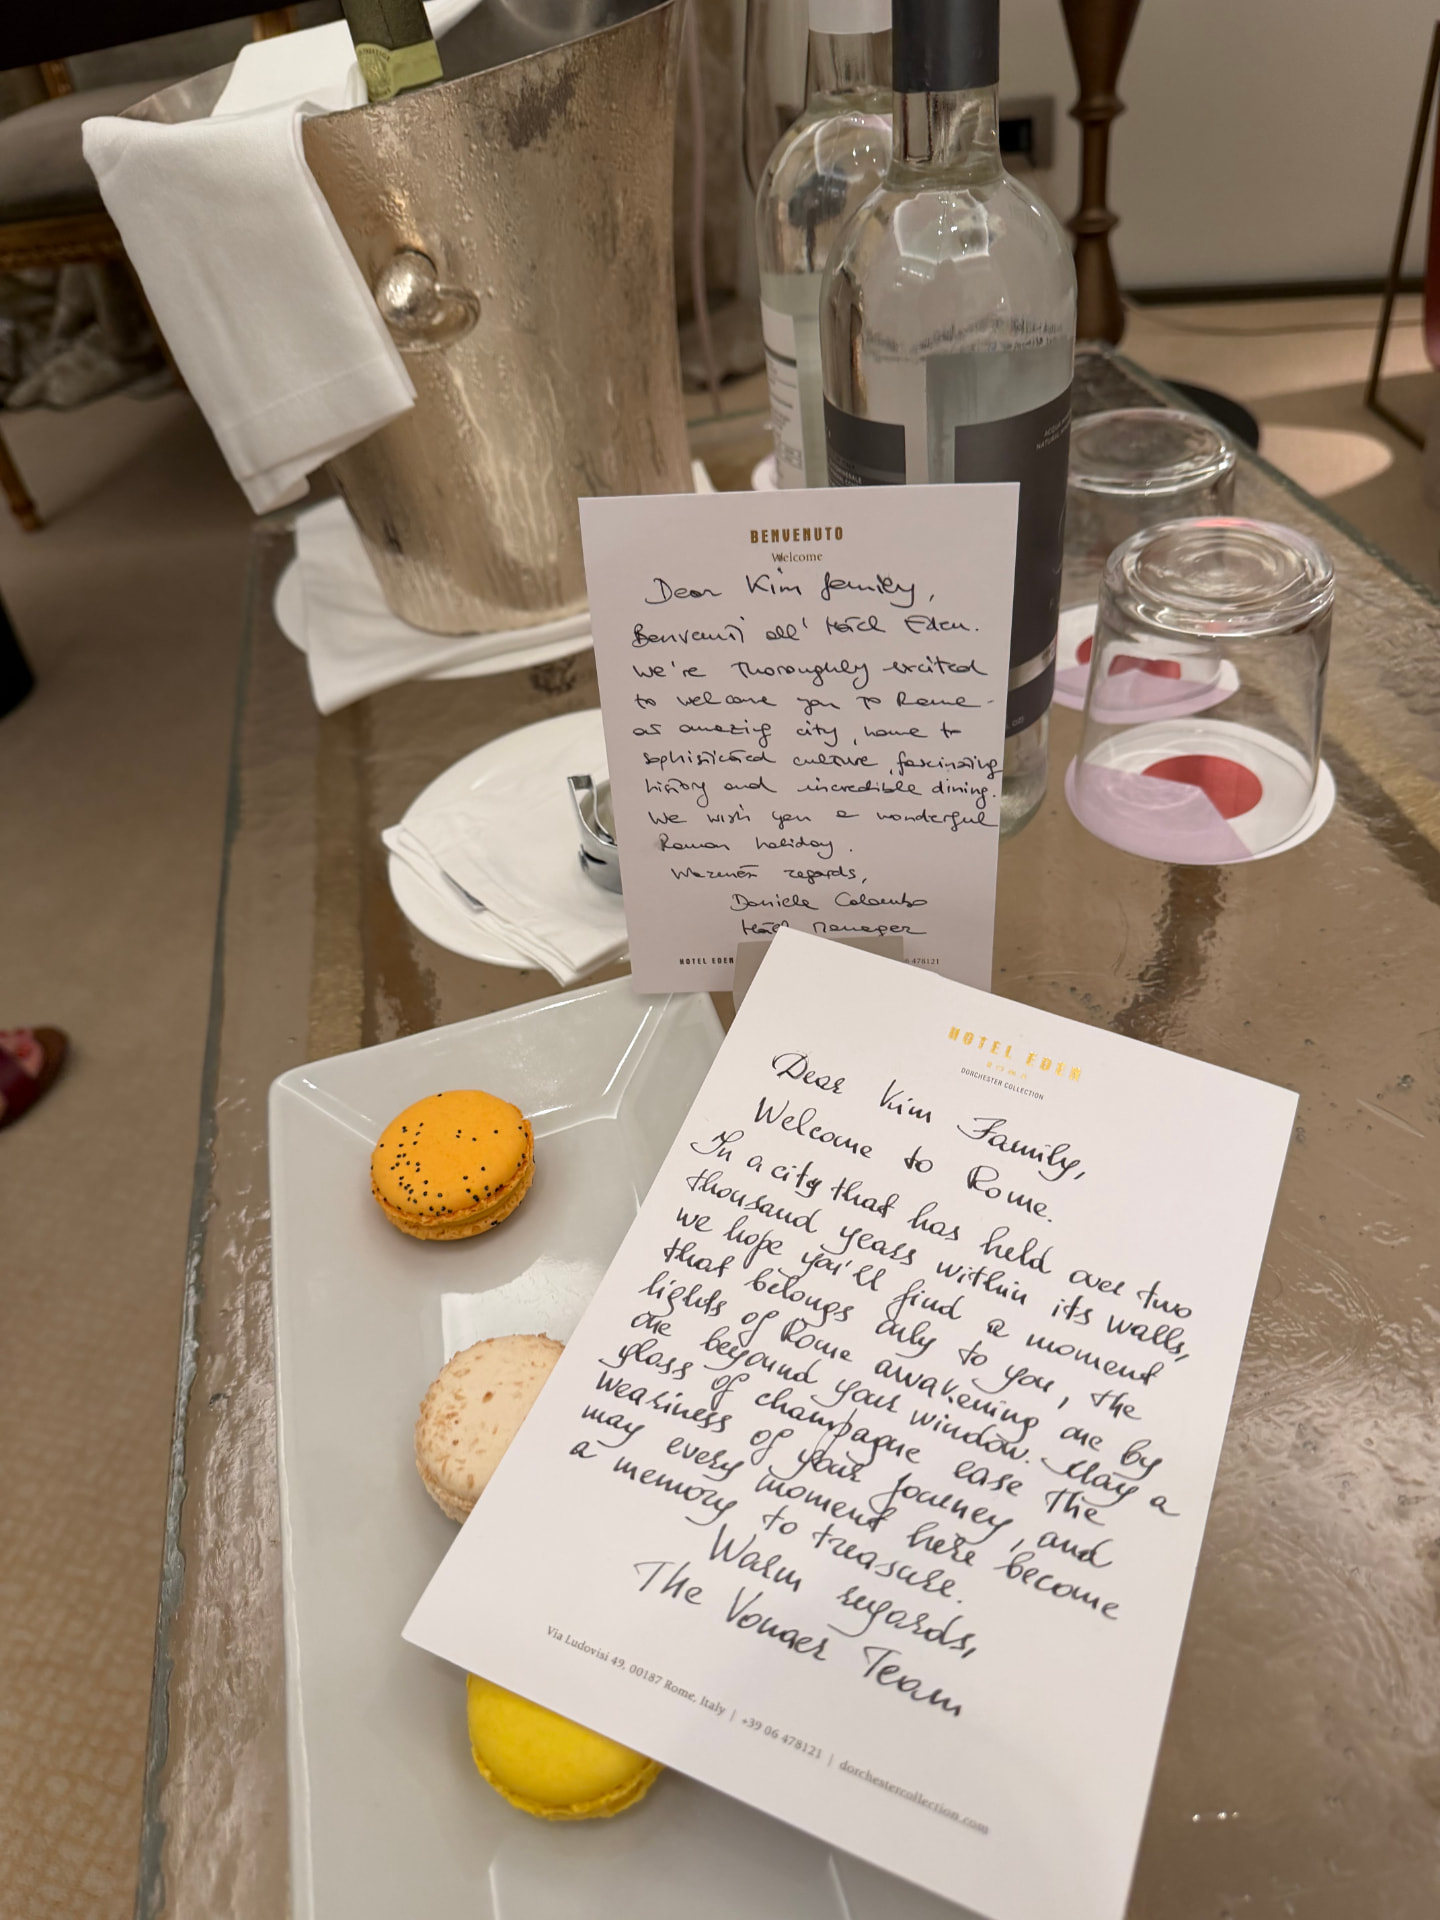 BENVENUTO
Welcome
Dear Kim family,
Benvenuti all' Hotel Eden.
We're thoroughly excited
to welcome you to Rome -
as amazing city, home to
sophisticated culture, fascinating
history and incredible dining.
We wish you a wonderful
Roman holiday.
Warmest regards,
Daniele Colombo
Hotel Manager
HOTEL EDEN
6 478121
HOTEL EDEN
ROMA
DORCHESTER COLLECTION
Dear Kim Family,
Welcome to Rome.
In a city that has held over two
thousand years within its walls,
we hope you'll find a moment
that belongs only to you, the
lights of Rome awakening one by
one beyound your window. May a
glass of champagne ease the
weariness of your journey, and
may every moment here become
a memory to treasure.
Warm regards,
The Team
Via Ludovisi 49, 00187 Rome, Italy | +39 06 478121 | dorchestercollection.com